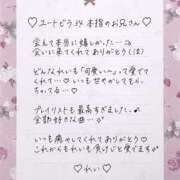 ♡ユートピア 本指のお兄さん♡
会えて本当に嬉しかった…♡
会いに来てくれてありがとう(泣)
どんなれいも「可愛い〜」って愛で
てくれて…♡いつも甘やかしてもら
ちゃってる…♡
プレイリストも最高すぎました…♪
全部好きな曲…♡
いつも癒やしてくれてありがとう♡
これからもれいを負けじと愛でます♡
♡れい♡